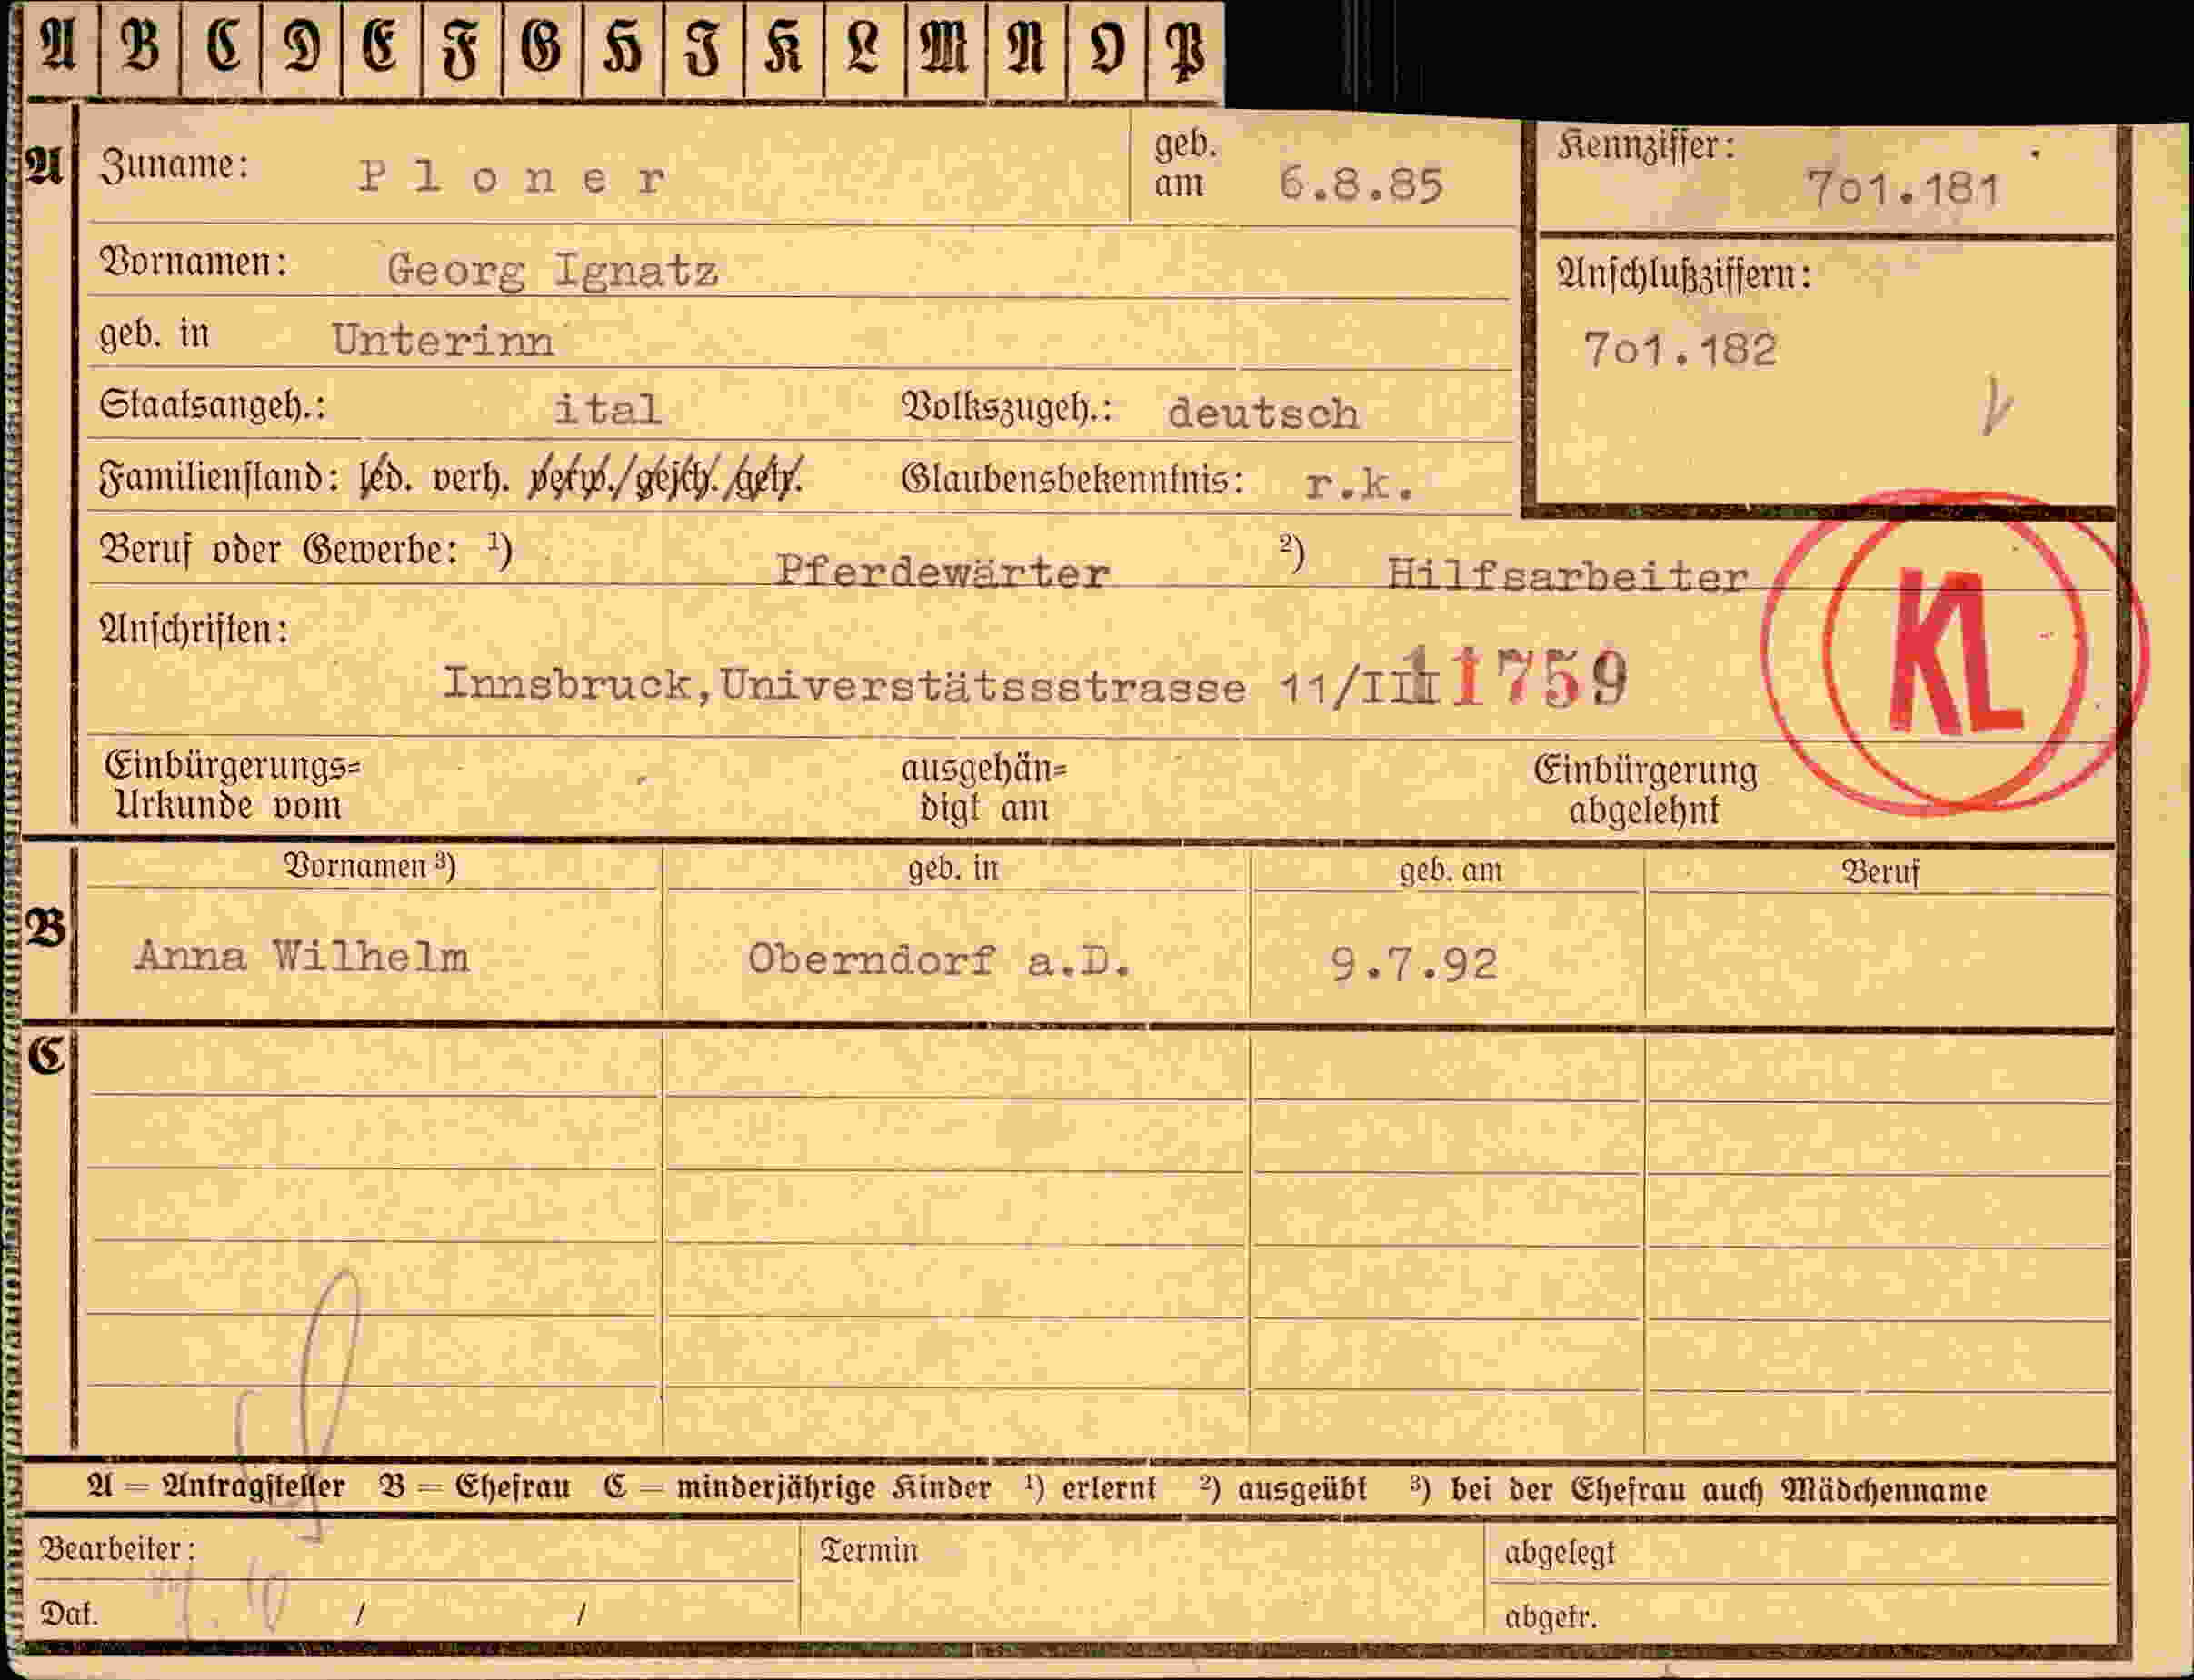 A B C D E F G H I K L M N O P
A Zuname: Ploner geb. am 6.8.85 Kennziffer: 7o1.181
Vornamen: Georg Ignatz Anschlußziffern:
geb. in Unterinn 7o1.182
Staatsangeh.: ital Volkszugeh.: deutsch
Familienstand: led. verh. verw./gesch./getr. Glaubensbekenntnis: r.k.
Beruf oder Gewerbe: ¹) Pferdewärter ²) Hilfsarbeiter
KL
Anschriften:
Innsbruck,Universtätssstrasse 11/III 11759
Einbürgerungs=
Urkunde vom
ausgehän=
digt am
Einbürgerung
abgelehnt
Vornamen ³) geb. in geb. am Beruf
B Anna Wilhelm Oberndorf a.D. 9.7.92
C
A = Antragsteller B = Ehefrau C = minderjährige Kinder ¹) erlernt ²) ausgeübt ³) bei der Ehefrau auch Mädchenname
Bearbeiter: Termin abgelegt
Dat. / / abgetr.